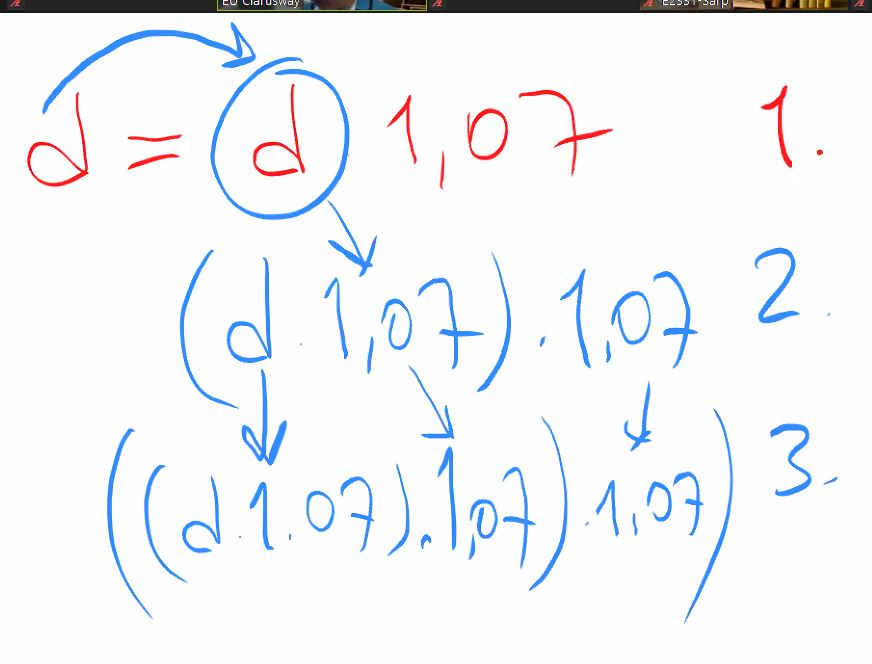 EU Clarusway E2331-Sarp
d = d 1,07 1.
(d . 1,07) . 1,07 2.
((d.1.07).1,07).1,07) 3.